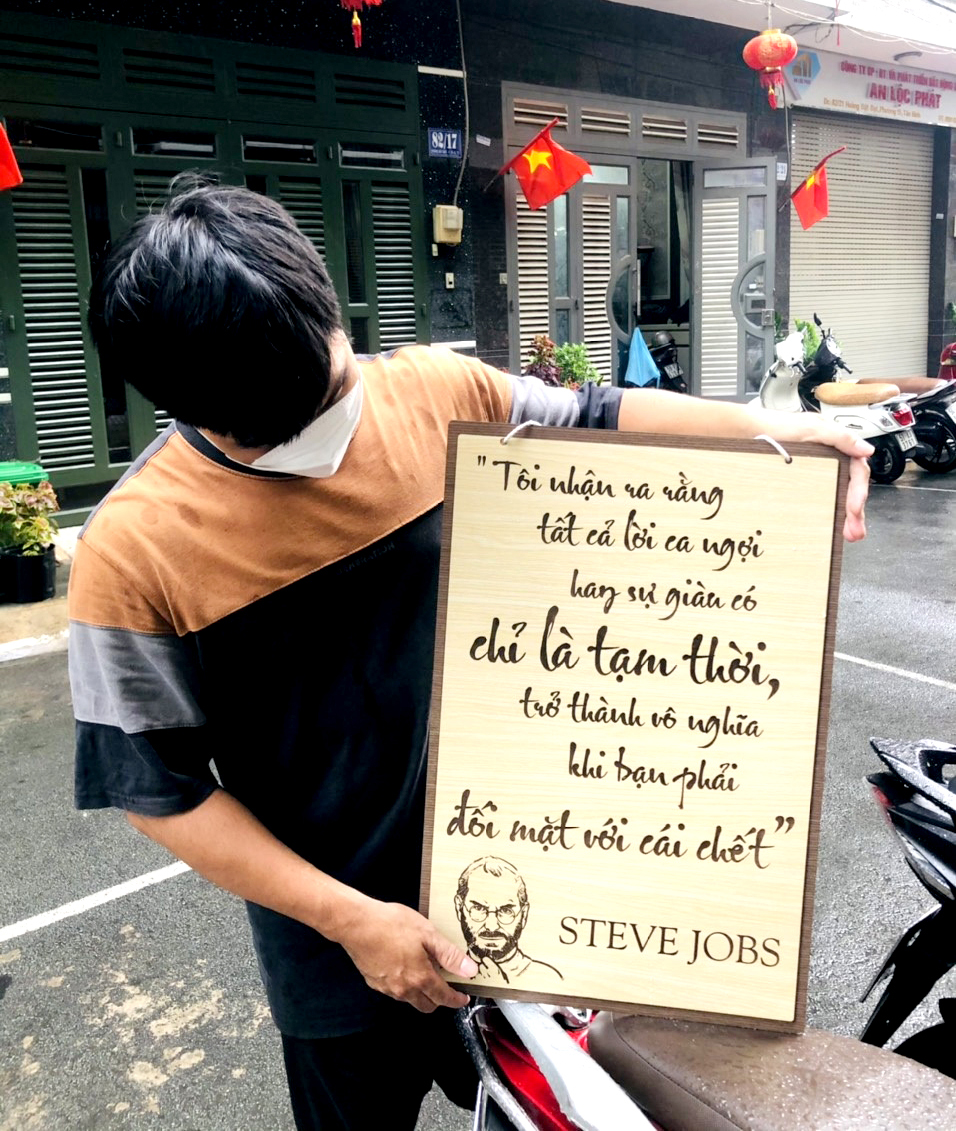 82/17
AN LỘC PHÁT
" Tôi nhận ra rằng
tất cả lời ca ngợi
hay sự giàu có
chỉ là tạm thời,
trở thành vô nghĩa
khi bạn phải
đối mặt với cái chết”
STEVE JOBS